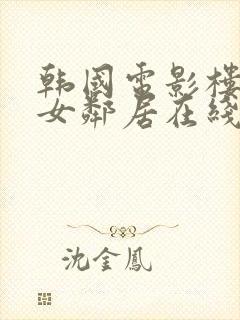 韩国电影楼
女邻居在线
沈金凤